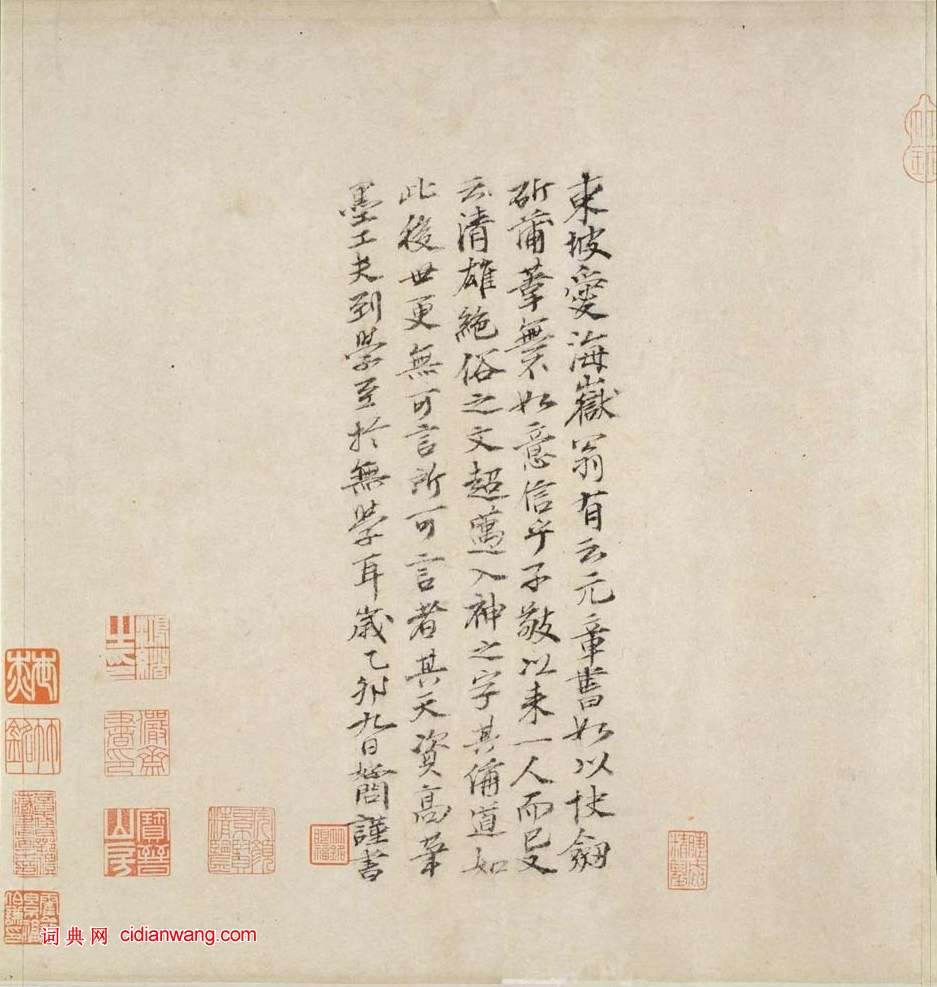 東坡愛海嶽翁有云元章書如以快劔
斫蒲葦無不如意信乎子敬以来一人而已又
云清雄絶俗之文超邁入神之字其偁道如
此後世更無可言所可言者其天資高筆
墨工夫到學至於無學耳歲乙卯九日好問謹書
寶晉山房
词典网 cidianwang.com